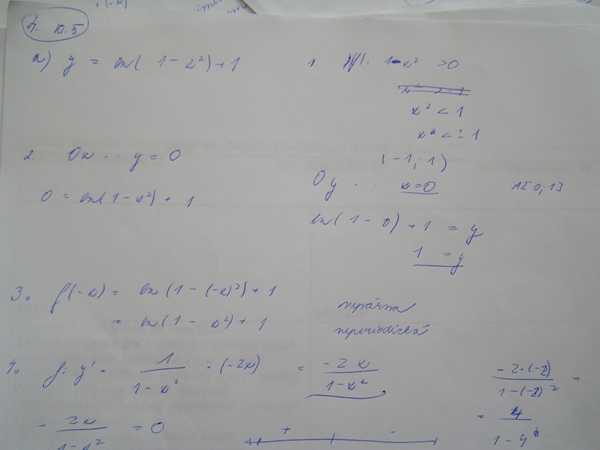 a) y = ln(1-x²)+1
1. 1-x² >0
x² < 1
x < ±1
(-1, 1)
2. Ox .. y = 0
0 = ln(1-x²) + 1
Oy .. x=0
ln(1-0)+1 = y
1 = y
3. f(-x) = ln(1-(-x)²)+1
= ln(1-x²)+1
nepárna
neperiodická
4. f: y' = 1/(1-x²) · (-2x) = -2x/(1-x²)
-2·(-2)/(1-(-2)²) =
= 4/(1-4)
- 2x/(1-x²) = 0
+ -